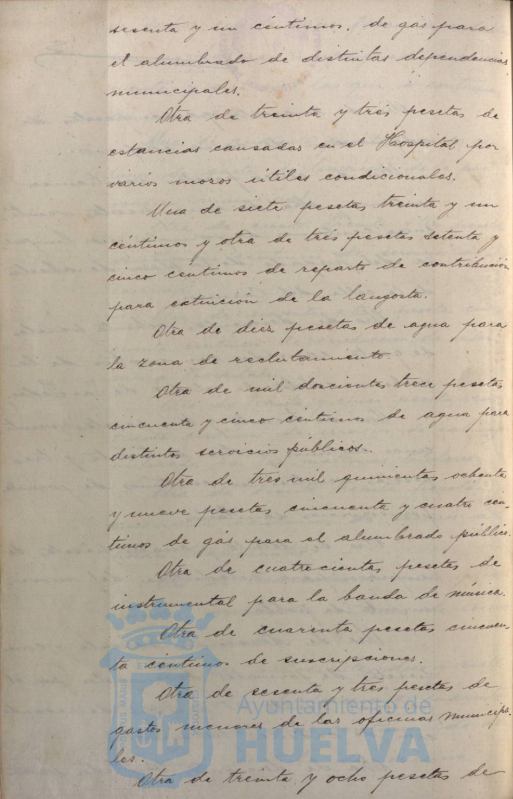 sesenta y un céntimos, de gás para
el alumbrado de distintas dependencias
municipales.
Otra de treinta y tres pesetas de
estancias causadas en el Hospital por
varios mozos útiles condicionales.
Una de siete pesetas treinta y un
céntimos y otra de tres pesetas setenta y
cinco céntimos de reparto de contribución
para extinción de la langosta.
Otra de diez pesetas de agua para
la zona de reclutamiento.
Otra de mil doscientas trece pesetas
cincuenta y cinco céntimos de agua para
distintos servicios públicos.
Otra de tres mil quinientas ochenta
y nueve pesetas cincuenta y cuatro cen-
timos de gás para el alumbrado público.
Otra de cuatrocientas pesetas de
instrumental para la banda de música.
Otra de cuarenta pesetas cincuen-
ta céntimos de suscripciones.
Otra de sesenta y tres pesetas de
gastos menores de las oficinas municipa-
les.
Otra de treinta y ocho pesetas de
Ayuntamiento de
HUELVA